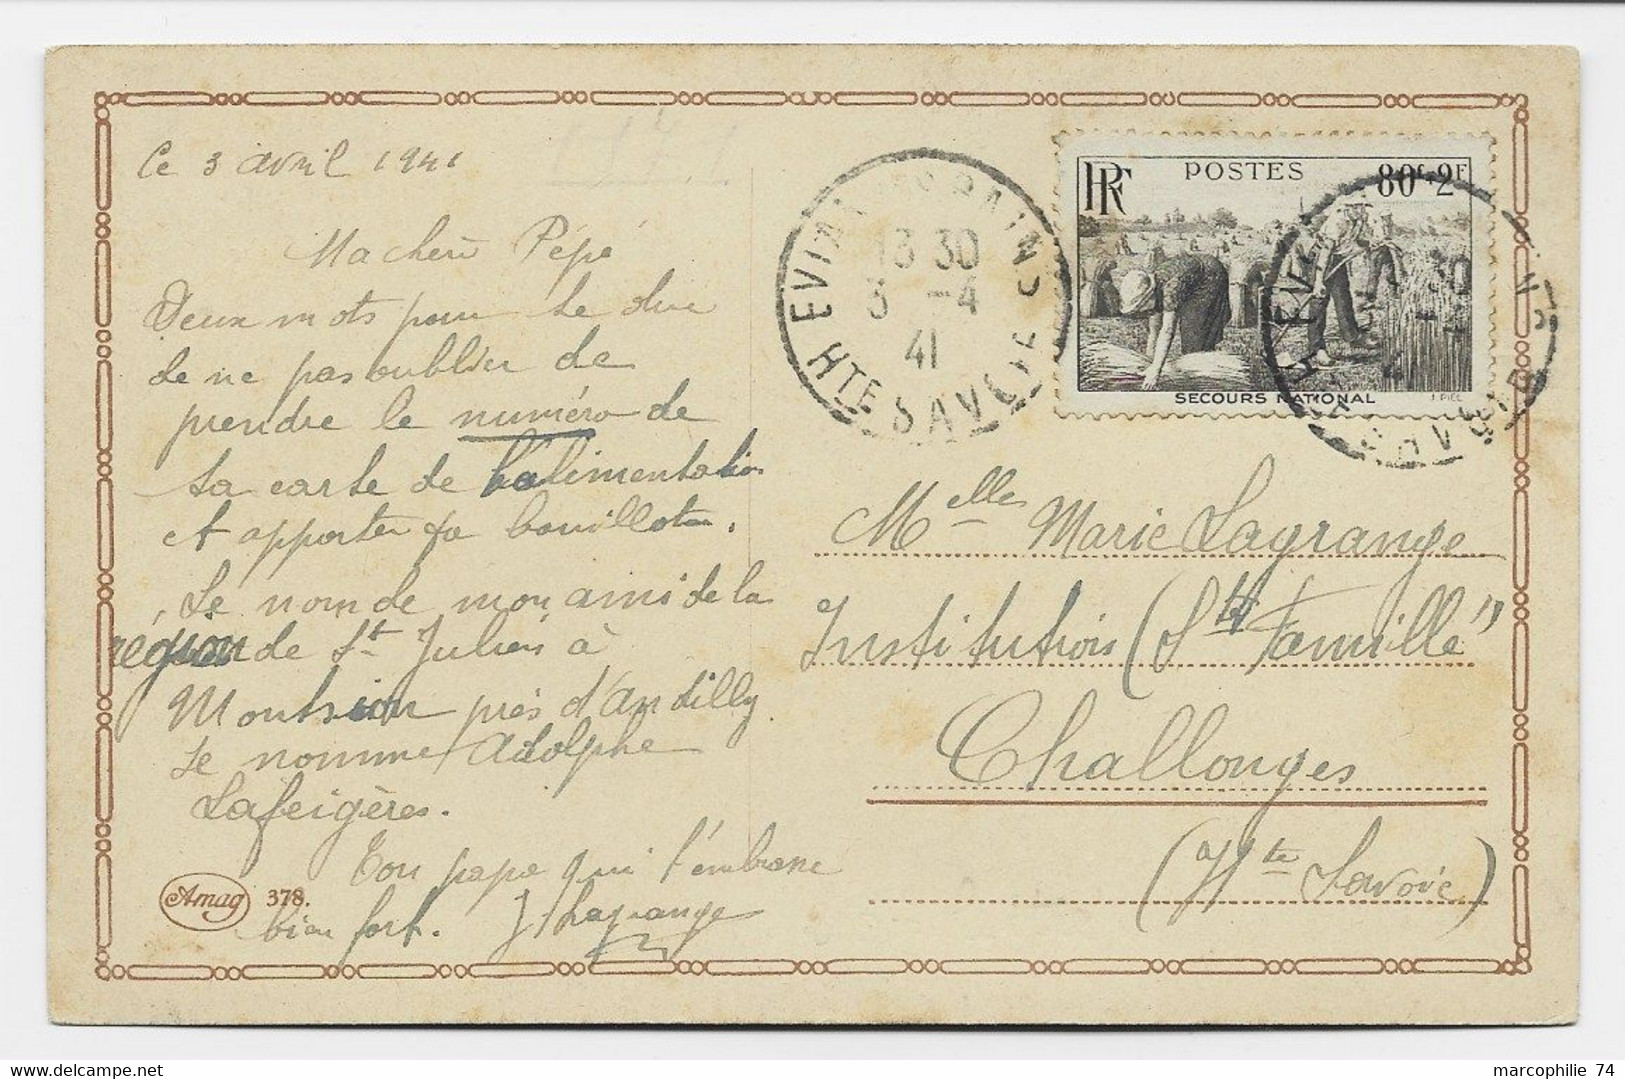 Ce 3 avril 1941
Ma chère Pépé
Deux mots pour te dire
de ne pas oublier de
prendre le numéro de
ta carte de l'alimentation
et apporter ta bouillotte.
Le nom de mon ami de la
région de St Julien à
près d'Andilly
se nomme Adolphe
Lafeigères.
Ton papa qui t'embrasse
bien fort. J Lagrange
Amag 378.
EVIAN LES BAINS
13 30
3 -4
41
HTE SAVOIE
RF POSTES 80c+2F
SECOURS NATIONAL
J. PIEL
Melle Marie Lagrange
Institution (Ste Famille"
Challonges
(Hte Savoie)
marcophilie 74